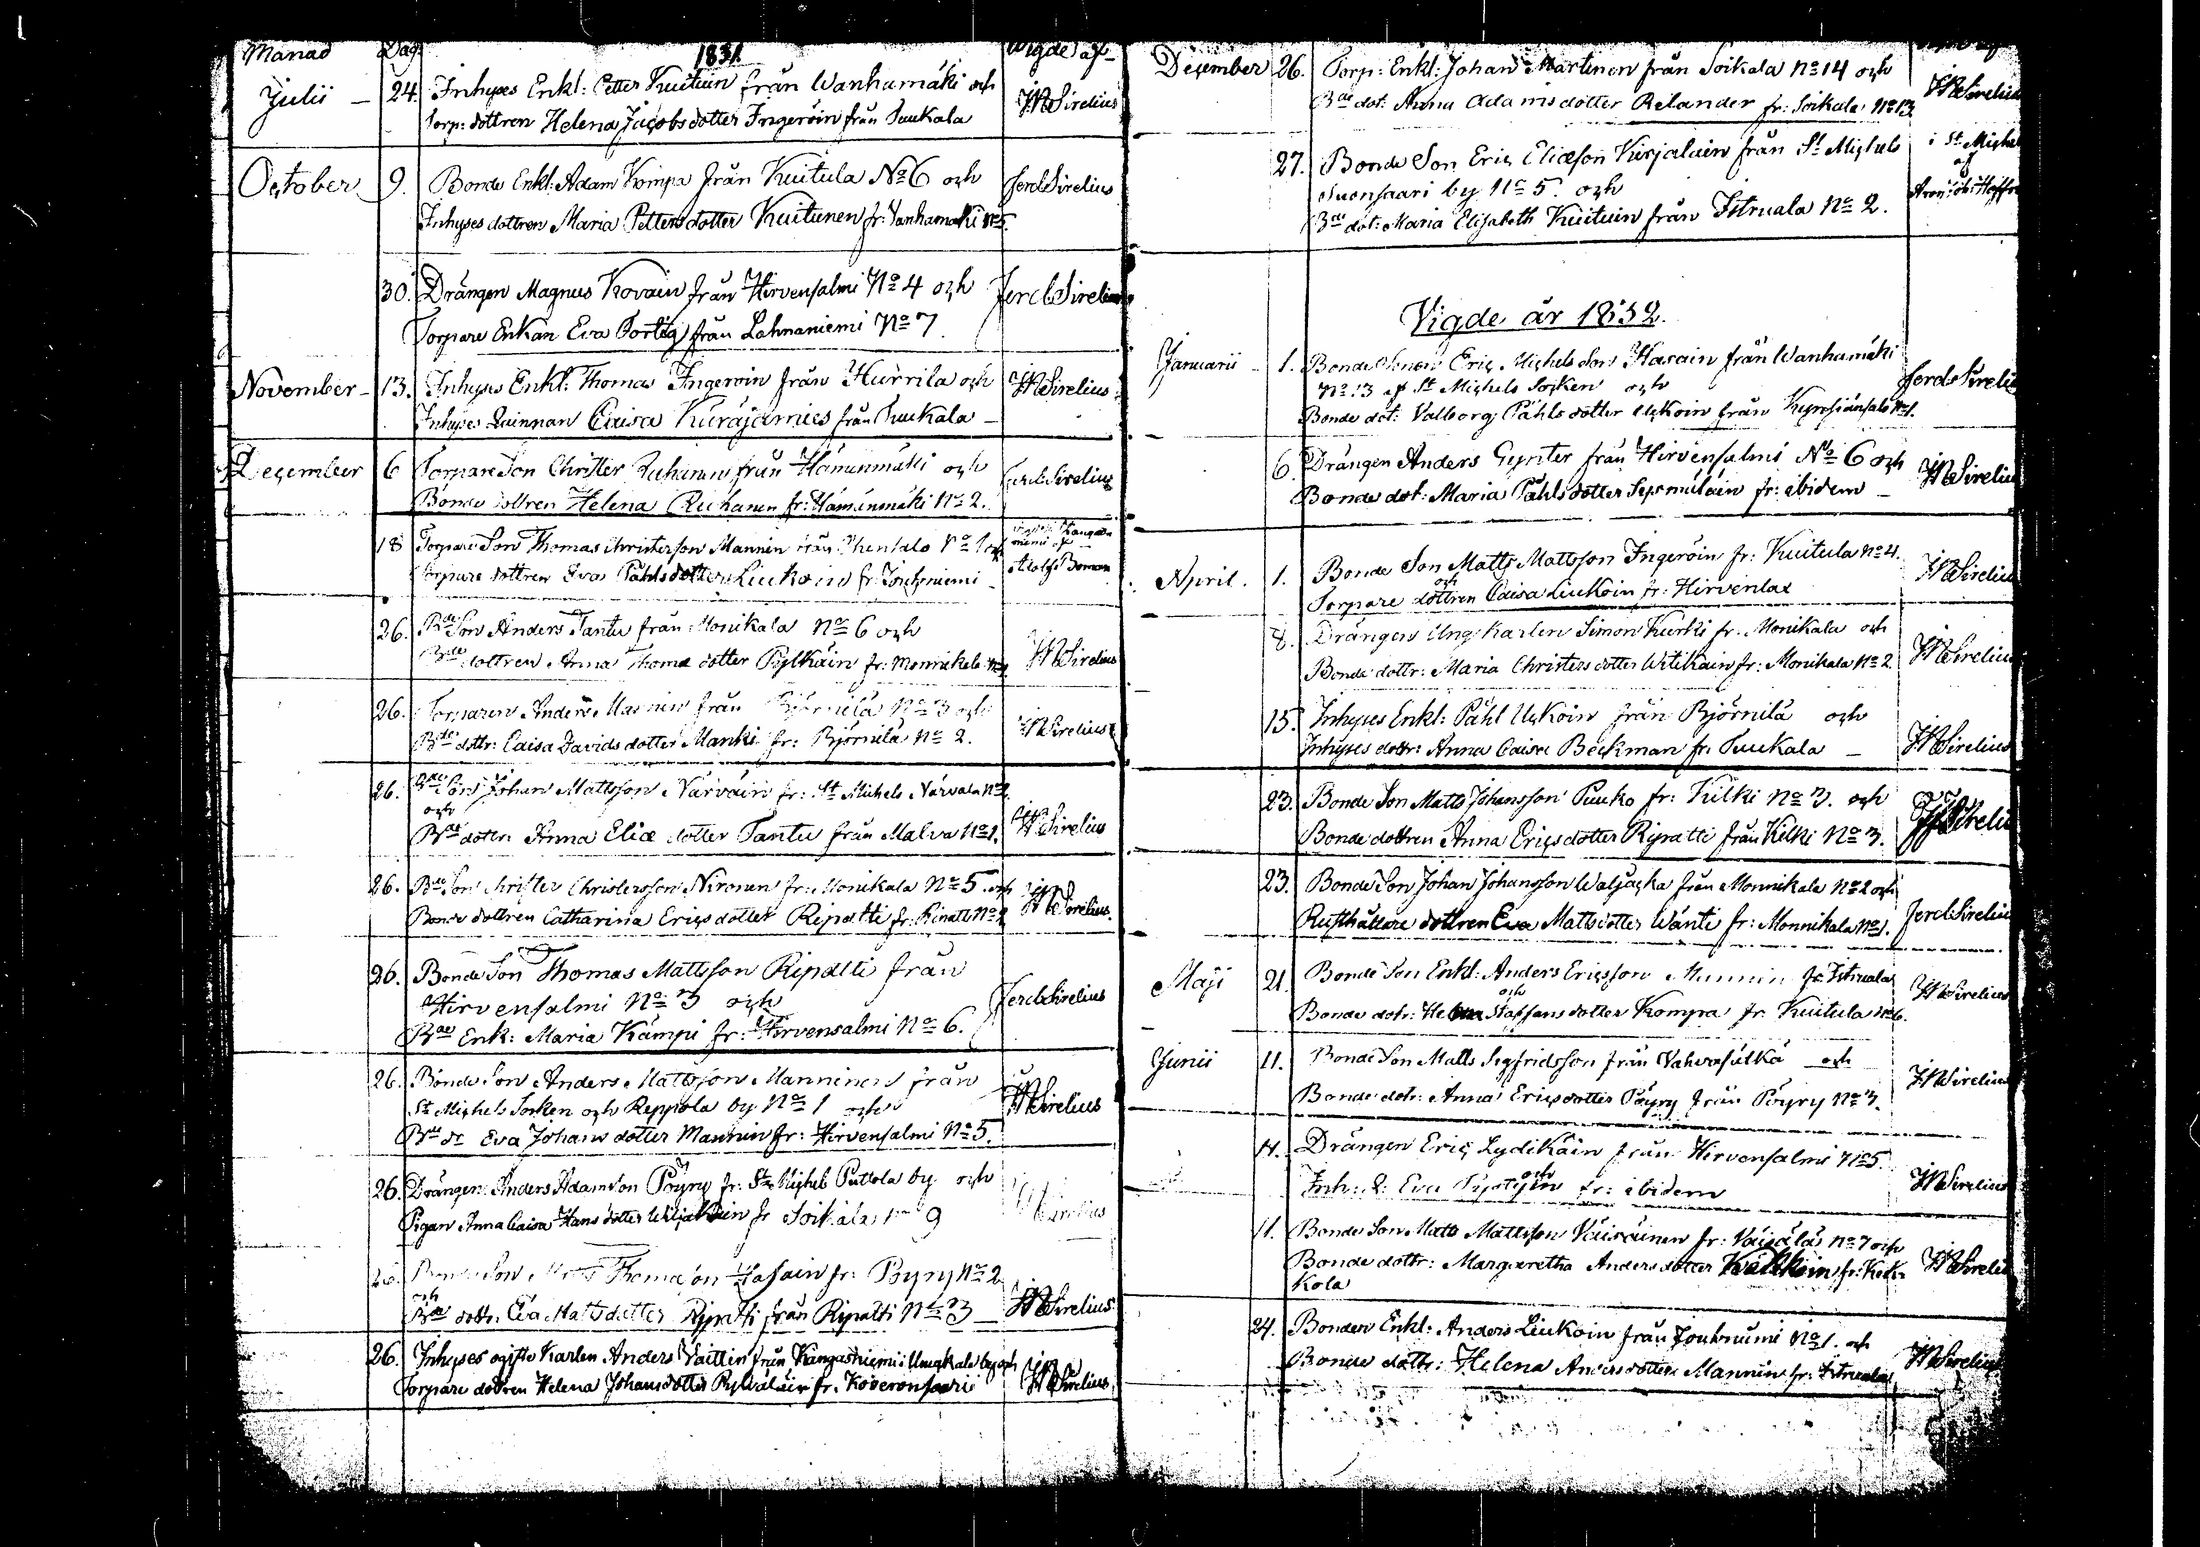 Månad Dag 1831. Wigde af
Julii - 24. Inhyses Enkl: Petter Kuituin från Wanhamäki och
Torp: dottren Helena Jacobs dotter Ingeröin från Tuukala
JWSirelius
October 9. Bonde Enkl: Adam Kompa från Kuitula No 6 och
Inhyses dottren Maria Petters dotter Kuitunen fr: Vanhamäki No 5.
Ferd:Sirelius
30. Drängen Magnus Kovain från Hirvensalmi No 4 och
Torpare Enkan Eva Tortig från Lahnaniemi No 7
Ferd:Sirelius
November - 13. Inhyses Enkl: Thomas Ingeroin från Hurrila och
Inhyses Quinnan Caisa Käräjämies från Tuukala -
JWSirelius
December 6 Torpare Son Christer från Hämänmäki och
Bonde dottren Helena Ruhanen fr: Hämänmäki No 2.
Ferd:Sirelius
18 Torpare Son Thomas Christerson Mannin från No 1 och
Torpare dottren Eva Påhls dotter Liukoin fr: Jouhniemi -
Adolf Boman
26. Bde Son Anders Tantu från Monikala No 6 och
Bde dottren Anna Thomæ dotter Pylkäin fr: Monnikala
JWSirelius
26. Torparen Anders Mannin från Björnilä No 3 och
Bde dottr: Caisa Davids dotter Manki fr: Björnilä No 2.
JWSirelius
26. Bde Son Johan Mattsson Närväin fr: St Michels Närvälä No 2.
och
Bde dottr: Anna Eliæ dotter Tantu från Malva No 1.
JWSirelius
26. Bde Son Christer Christersson Nironen fr: Monikala No 5. och
Bonde dottren Catharina Erics dotter Ripatti fr: Ripatti No 2
JWSirelius.
26. Bonde Son Thomas Mattsson Ripatti från
Hirvensalmi No 3 och
Bde Enk: Maria Kämpi fr: Hirvensalmi No 6.
Ferd:Sirelius
26. Bonde Son Anders Mattsson Manninen från
St Michels Socken och Reppola by No 1 och
Bde dr Eva Johans dotter Mannin fr: Hirvensalmi No 5.
JWSirelius
26. Drängen Anders Adamson Pöyry fr: St Michels Puttola by och
Pigan Anna Caisa Hans dotter fr Soikala No 9
JWSirelius
26. Bonde Son Matts Thomason Hasain fr: Pöyry No 2
och
Bde dottr. Eva Matts dotter Ripatti från Ripatti No 3 -
JWSirelius
26. Inhyses ogifte Karlen Anders Väittin från Kangasniemi i Unnukala by och
Torpare dottren Helena Johans dotter Pylväläin fr: Koveronsaari
JWSirelius
December 26. Torp: Enkl: Johan Martinen från Soikala No 14 och
Bde dot: Anna Adams dotter Relander fr: Soikala No 13
JWSirelius
27. Bonde Son Eric Eliæson Kirjalain från St Michels
Suonsaari by No 5. och
Bde dot: Maria Elisabeth Kuituin från Istruala No 2.
i St Michel
af
Vigde år 1832.
Januarii - 1. Bonde Eric Michels Son Hasain från Wanhamäki
No 3 af St Michels Socken och
Bonde dot: Valborg Påhls dotter Uckoin från No 1.
Ferd:Sirelius
6. Drängen Anders Gynter från Hirvensalmi No 6 och
Bonde dot: Maria Påhls dotter Sysmäläin fr: ibidem -
JWSirelius
April. 1. Bonde Son Matts Mattsson Ingeröin fr: Kuitula No 4.
och
Torpare dottren Caisa Liukoin fr: Hirvenlax
JWSirelius
8. Drängen Ung Karlen Simon Kurki fr: Monikala och
Bonde dottr: Maria Christers dotter Witikain fr: Monikala No 2
JWSirelius
15. Inhyses Enkl: Påhl Uckoin från Björnilä och
Inhyses dottr: Anna Caisa Beckman fr: Tuukala -
JWSirelius
23. Bonde Son Matts Johansson Puuko fr: Kilki No 3. och
Bonde dottren Anna Erics dotter Ripatti från Kilki No 3.
Sirelius
23. Bonde Son Johan Johansson Waljacka från Monnikala No 2 och
Rusthållare dottren Eva Matts dotter Wänti fr: Monnikala No 1.
Ferd:Sirelius
Maji 21. Bonde Son Enkl: Anders Ericsson Mannin fr: Istruala
och
Bonde dotr: Helena Staffans dotter Kompa fr: Kuitula No 6.
JWSirelius
Junii 11. Bonde Son Matts Sigfridsson från och
Bonde dotr: Anna Erics dotter Pöyry från Pöyry No 3.
JWSirelius
11. Drängen Eric Lydikäin från Hirvensalmi No 5.
och
Inh: d: Eva fr: ibidem
JWSirelius
11. Bonde Son Matts Mattsson Väisäinen fr: Väisälä No 7 och
Bonde dottr: Margaretha Anders dotter fr: Kekkola
JWSirelius
24. Bonden Enkl: Anders Liukoin från Jouhniemi No 1. och
Bonde dottr: Helena Anders dotter Mannin fr: Istruala
JWSirelius